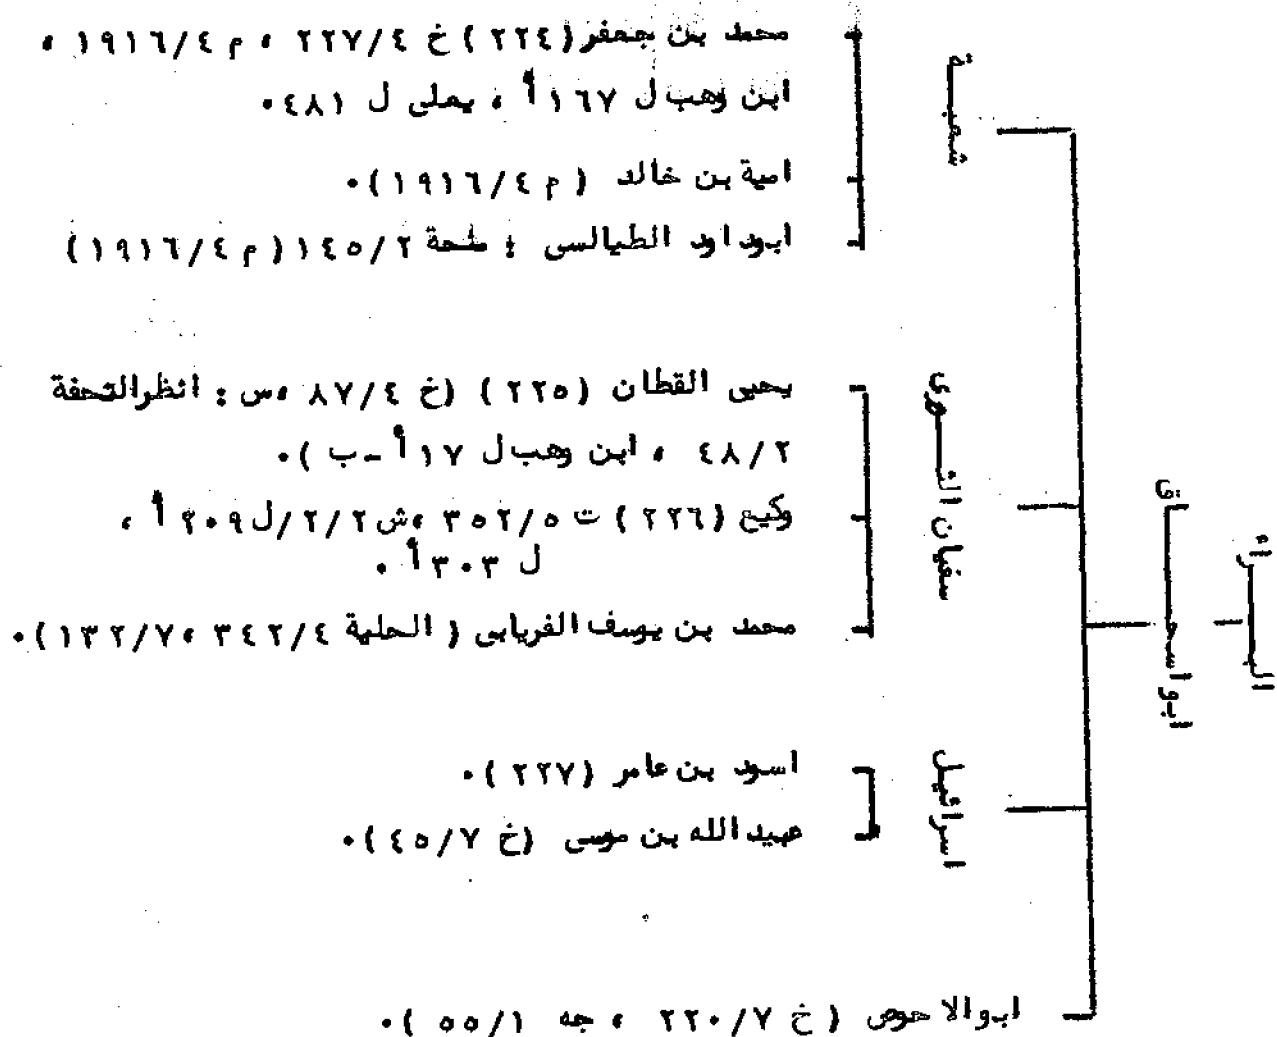 البراء
ابواسحاق
شعبة
محمد بن جعفر (٢٢٤) خ ٢٢٧/٤ ، م ١٩١٦/٤ ،
ابن وهب ل ١٦٧أ ، يعلى ل ٤٨١٠
امية بن خالد ( م ١٩١٦/٤)٠
ابوداود الطيالسى ؛ منحة ١٤٥/٢ ( م ١٩١٦/٤)
سفيان الثورى
يحيى القطان (٢٢٥) (خ ٨٧/٤ ،س : انظرالتحفة
٤٨/٢ ، ابن وهب ل ١٧أ -ب )٠
وكيع (٢٢٦) ت ٣٥٢/٥ ،ش ٢/٢/ل ٢٠٩أ ،
ل ٣٠٣أ ٠
محمد بن يوسف الفريابى ( الحلية ٣٤٢/٤ ،١٣٢/٧)٠
اسرائيل
اسود بن عامر (٢٢٧)٠
عبيد الله بن موسى (خ ٤٥/٧ )٠
ابوالاحوص ( خ ٢٢٠/٧ ، جه ٥٥/١ )٠